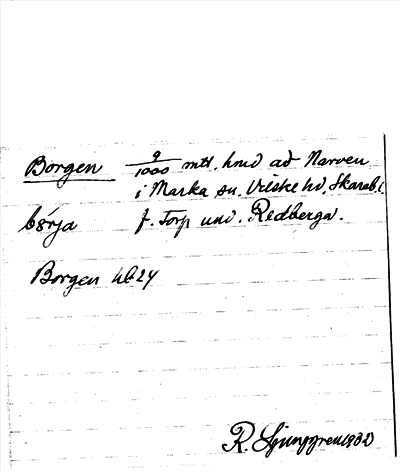 Borgen 9/1000 mtl. hmd ad Narven
i Marka sn. Vilske hd. Skarab. l
börja f. Torp und. Redberga.
Borgen
R. Ljunggren 1930